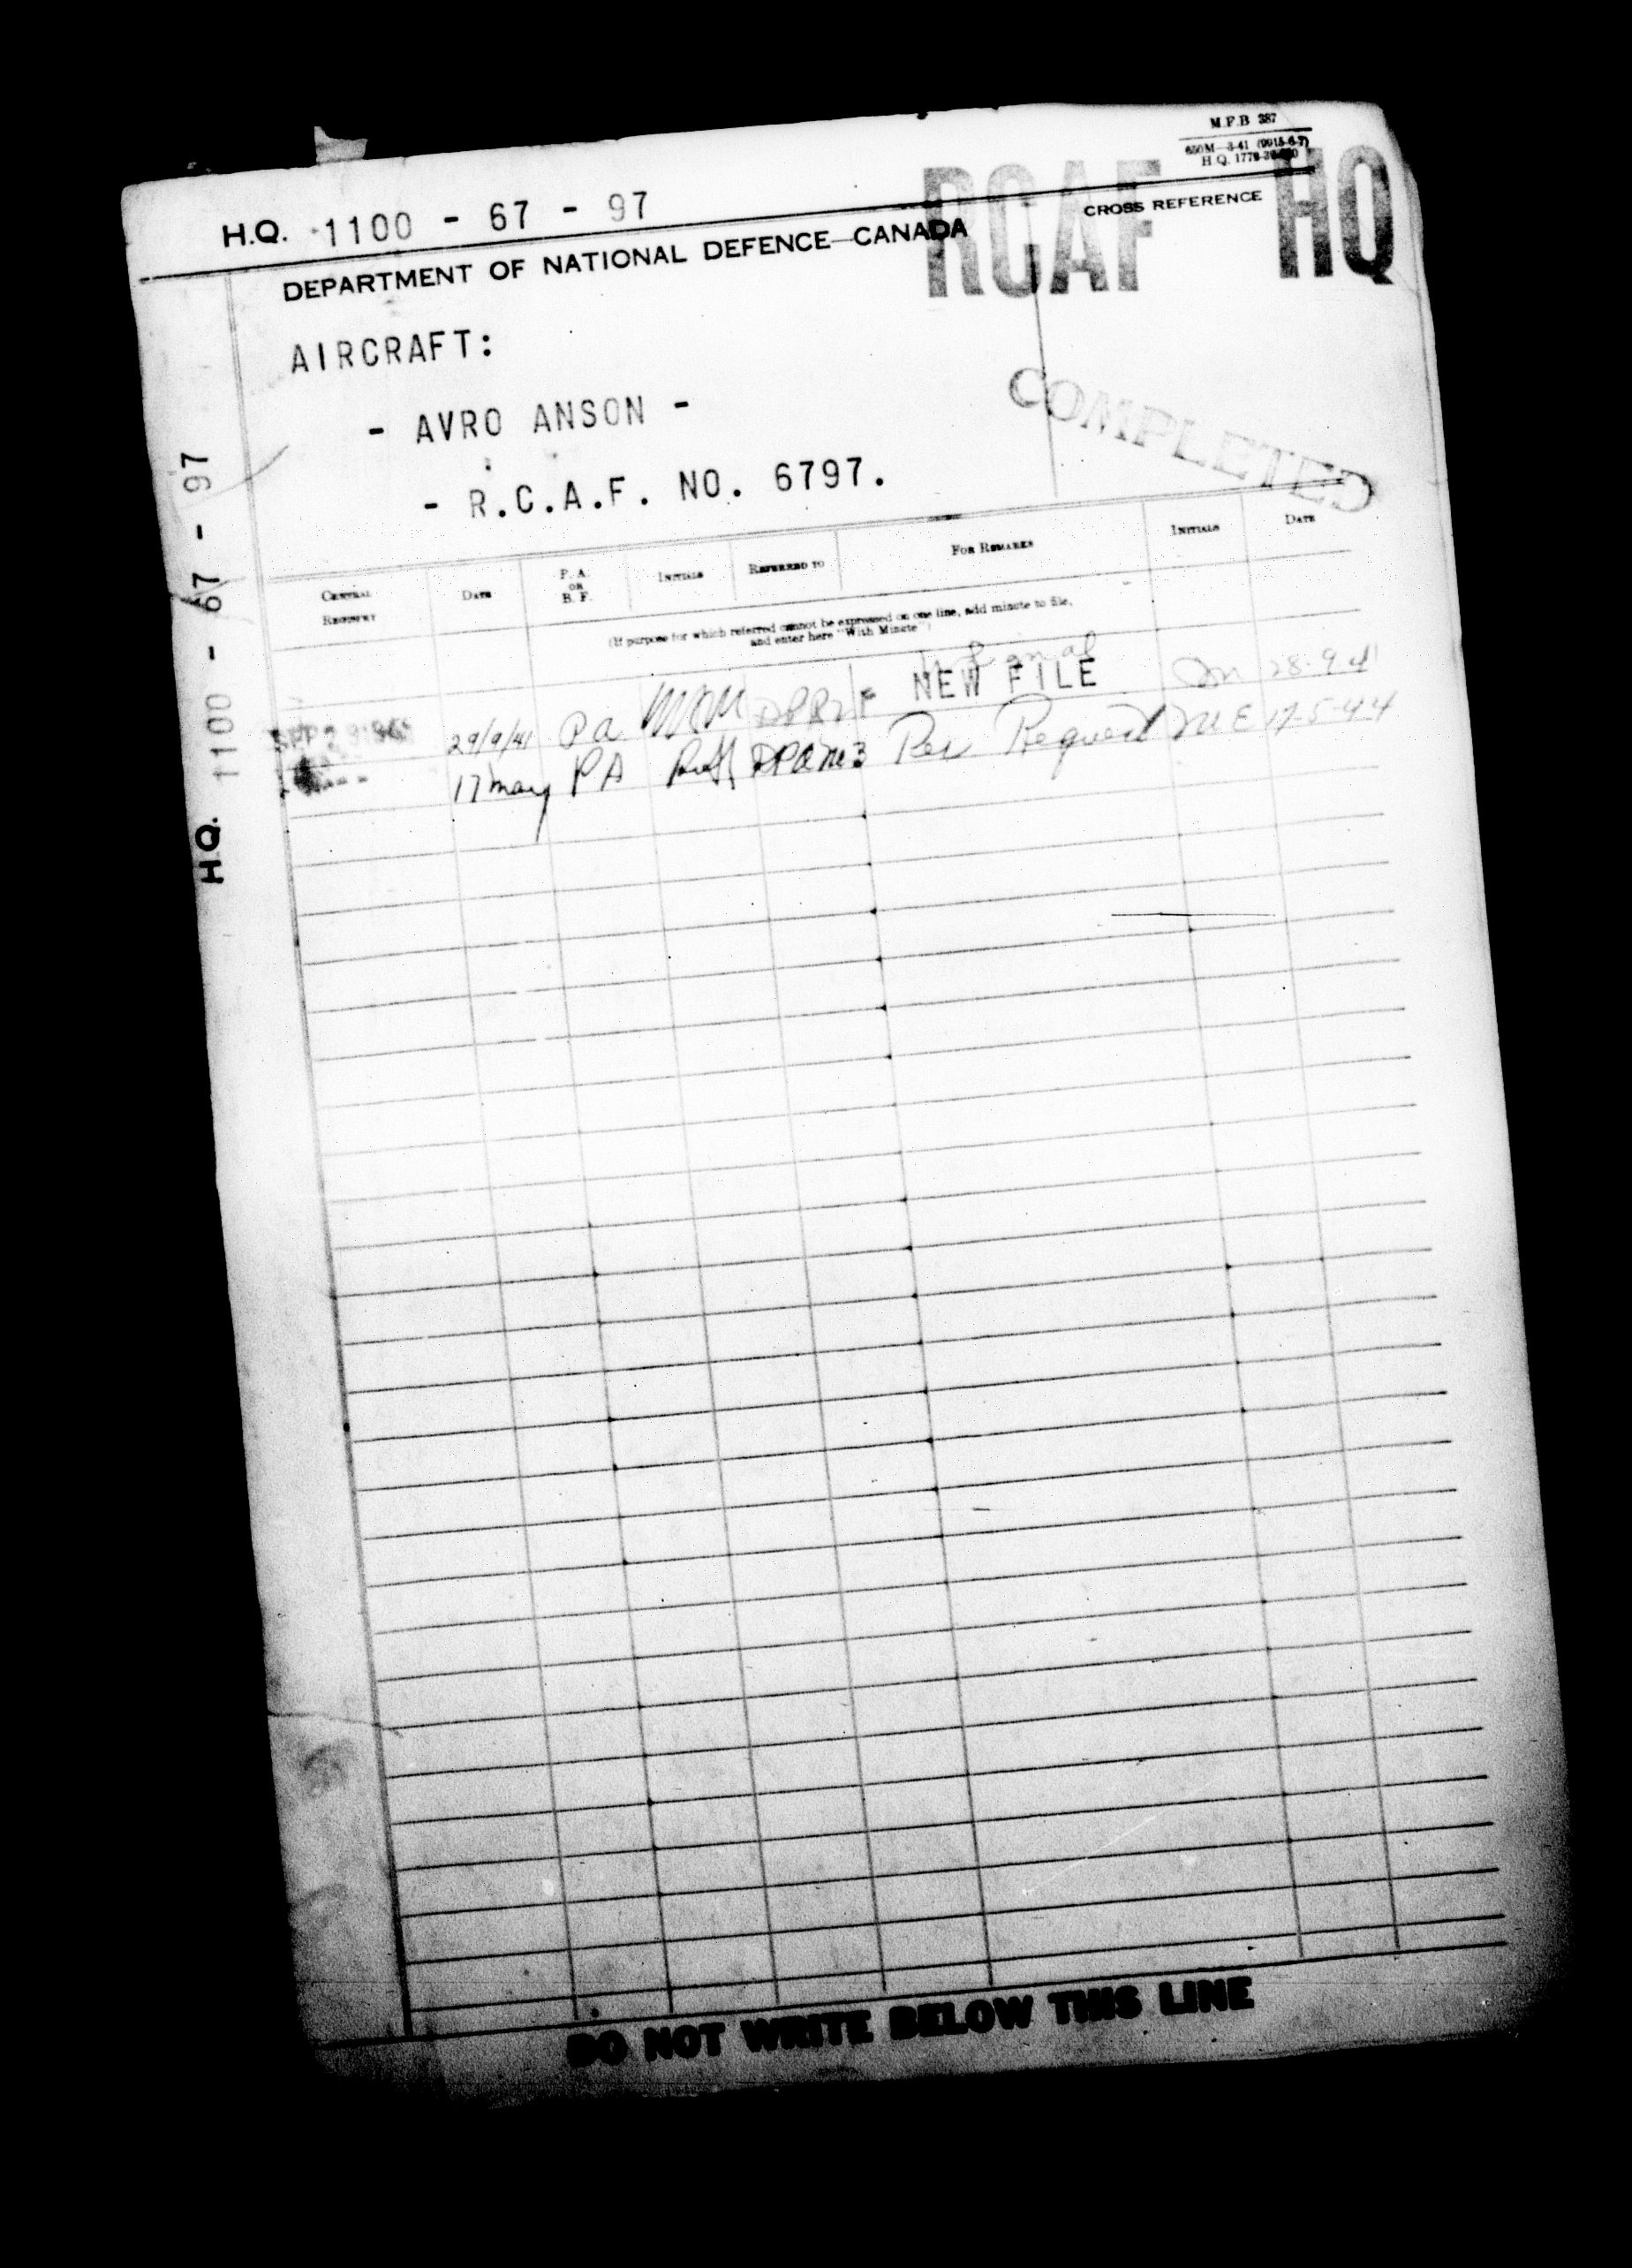 M.F.B 387
650M—3-41 (9915-6-7)
H.Q. 1772-39-
H.Q. 1100 - 67 - 97
RCAF HQ
CROSS REFERENCE
DEPARTMENT OF NATIONAL DEFENCE—CANADA
AIRCRAFT:
- AVRO ANSON -
- R.C.A.F. NO. 6797.
COMPLETED
H.Q. 1100 - 67 - 97
CENTRAL REGISTRY DATE P. A. OR B. F. INITIALS REFERRED TO FOR REMARKS INITIALS DATE
(If purpose for which referred cannot be expressed on one line, add minute to file,
and enter here "With Minute")
NEW FILE 28-9-41
29/9/41 PA
17 May PA Per Request 17-5-44
DO NOT WRITE BELOW THIS LINE